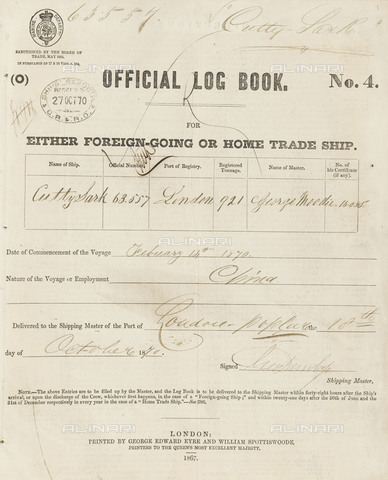 63557. "Cutty Sark"
SANCTIONED BY THE BOARD OF
TRADE, MAY 1865,
(O) OFFICIAL LOG BOOK. No. 4.
27 OCT 70
FOR
EITHER FOREIGN-GOING OR HOME TRADE SHIP.
Name of Ship. Official Number. Port of Registry. Registered Tonnage. Name of Master. No. of his Certificate (if any).
Cutty Sark 63.557 London 921 George Moodie
Date of Commencement of the Voyage February 14th 1870.
Nature of the Voyage or Employment China
Delivered to the Shipping Master of the Port of London Poplar the 18th
day of October 1870.
Signed
Shipping Master.
NOTE.—The above Entries are to be filled up by the Master, and the Log Book is to be delivered to the Shipping Master within forty-eight hours after the Ship's
arrival, or upon the discharge of the Crew, whichever first happens, in the case of a "Foreign-going Ship;" and within twenty-one days after the 30th of June and the
31st of December respectively in every year in the case of a "Home Trade Ship."
LONDON;
PRINTED BY GEORGE EDWARD EYRE AND WILLIAM SPOTTISWOODE,
PRINTERS TO THE QUEEN'S MOST EXCELLENT MAJESTY.
1867.
ALINARI
ALINARI
ALINARI
ALINARI